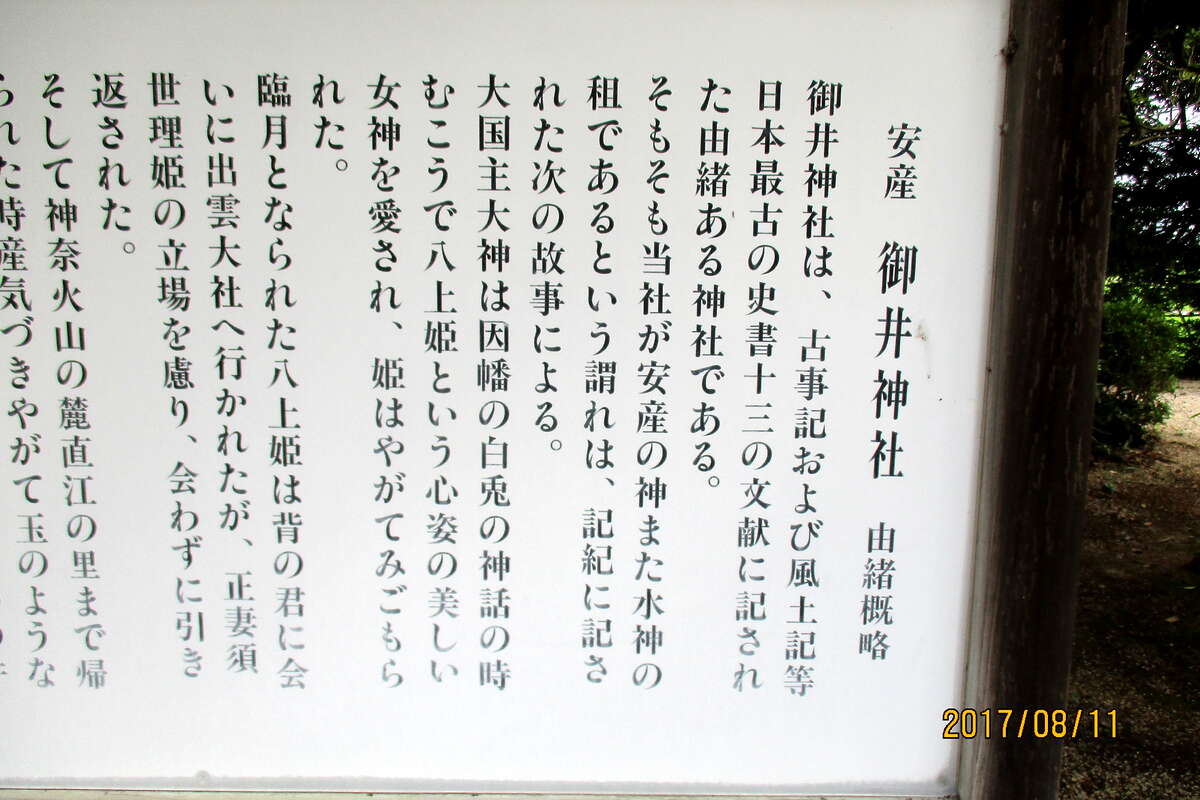 安産 御井神社 由緒概略
御井神社は、古事記および風土記等
日本最古の史書十三の文献に記され
た由緒ある神社である。
そもそも当社が安産の神また水神の
租であるという謂れは、記紀に記さ
れた次の故事による。
大国主大神は因幡の白兎の神話の時
むこうで八上姫という心姿の美しい
女神を愛され、姫はやがてみごもら
れた。
臨月となられた八上姫は背の君に会
いに出雲大社へ行かれたが、正妻須
世理姫の立場を慮り、会わずに引き
返された。
そして神奈火山の麓直江の里まで帰
られた時産気づきやがて玉のような
2017/08/11